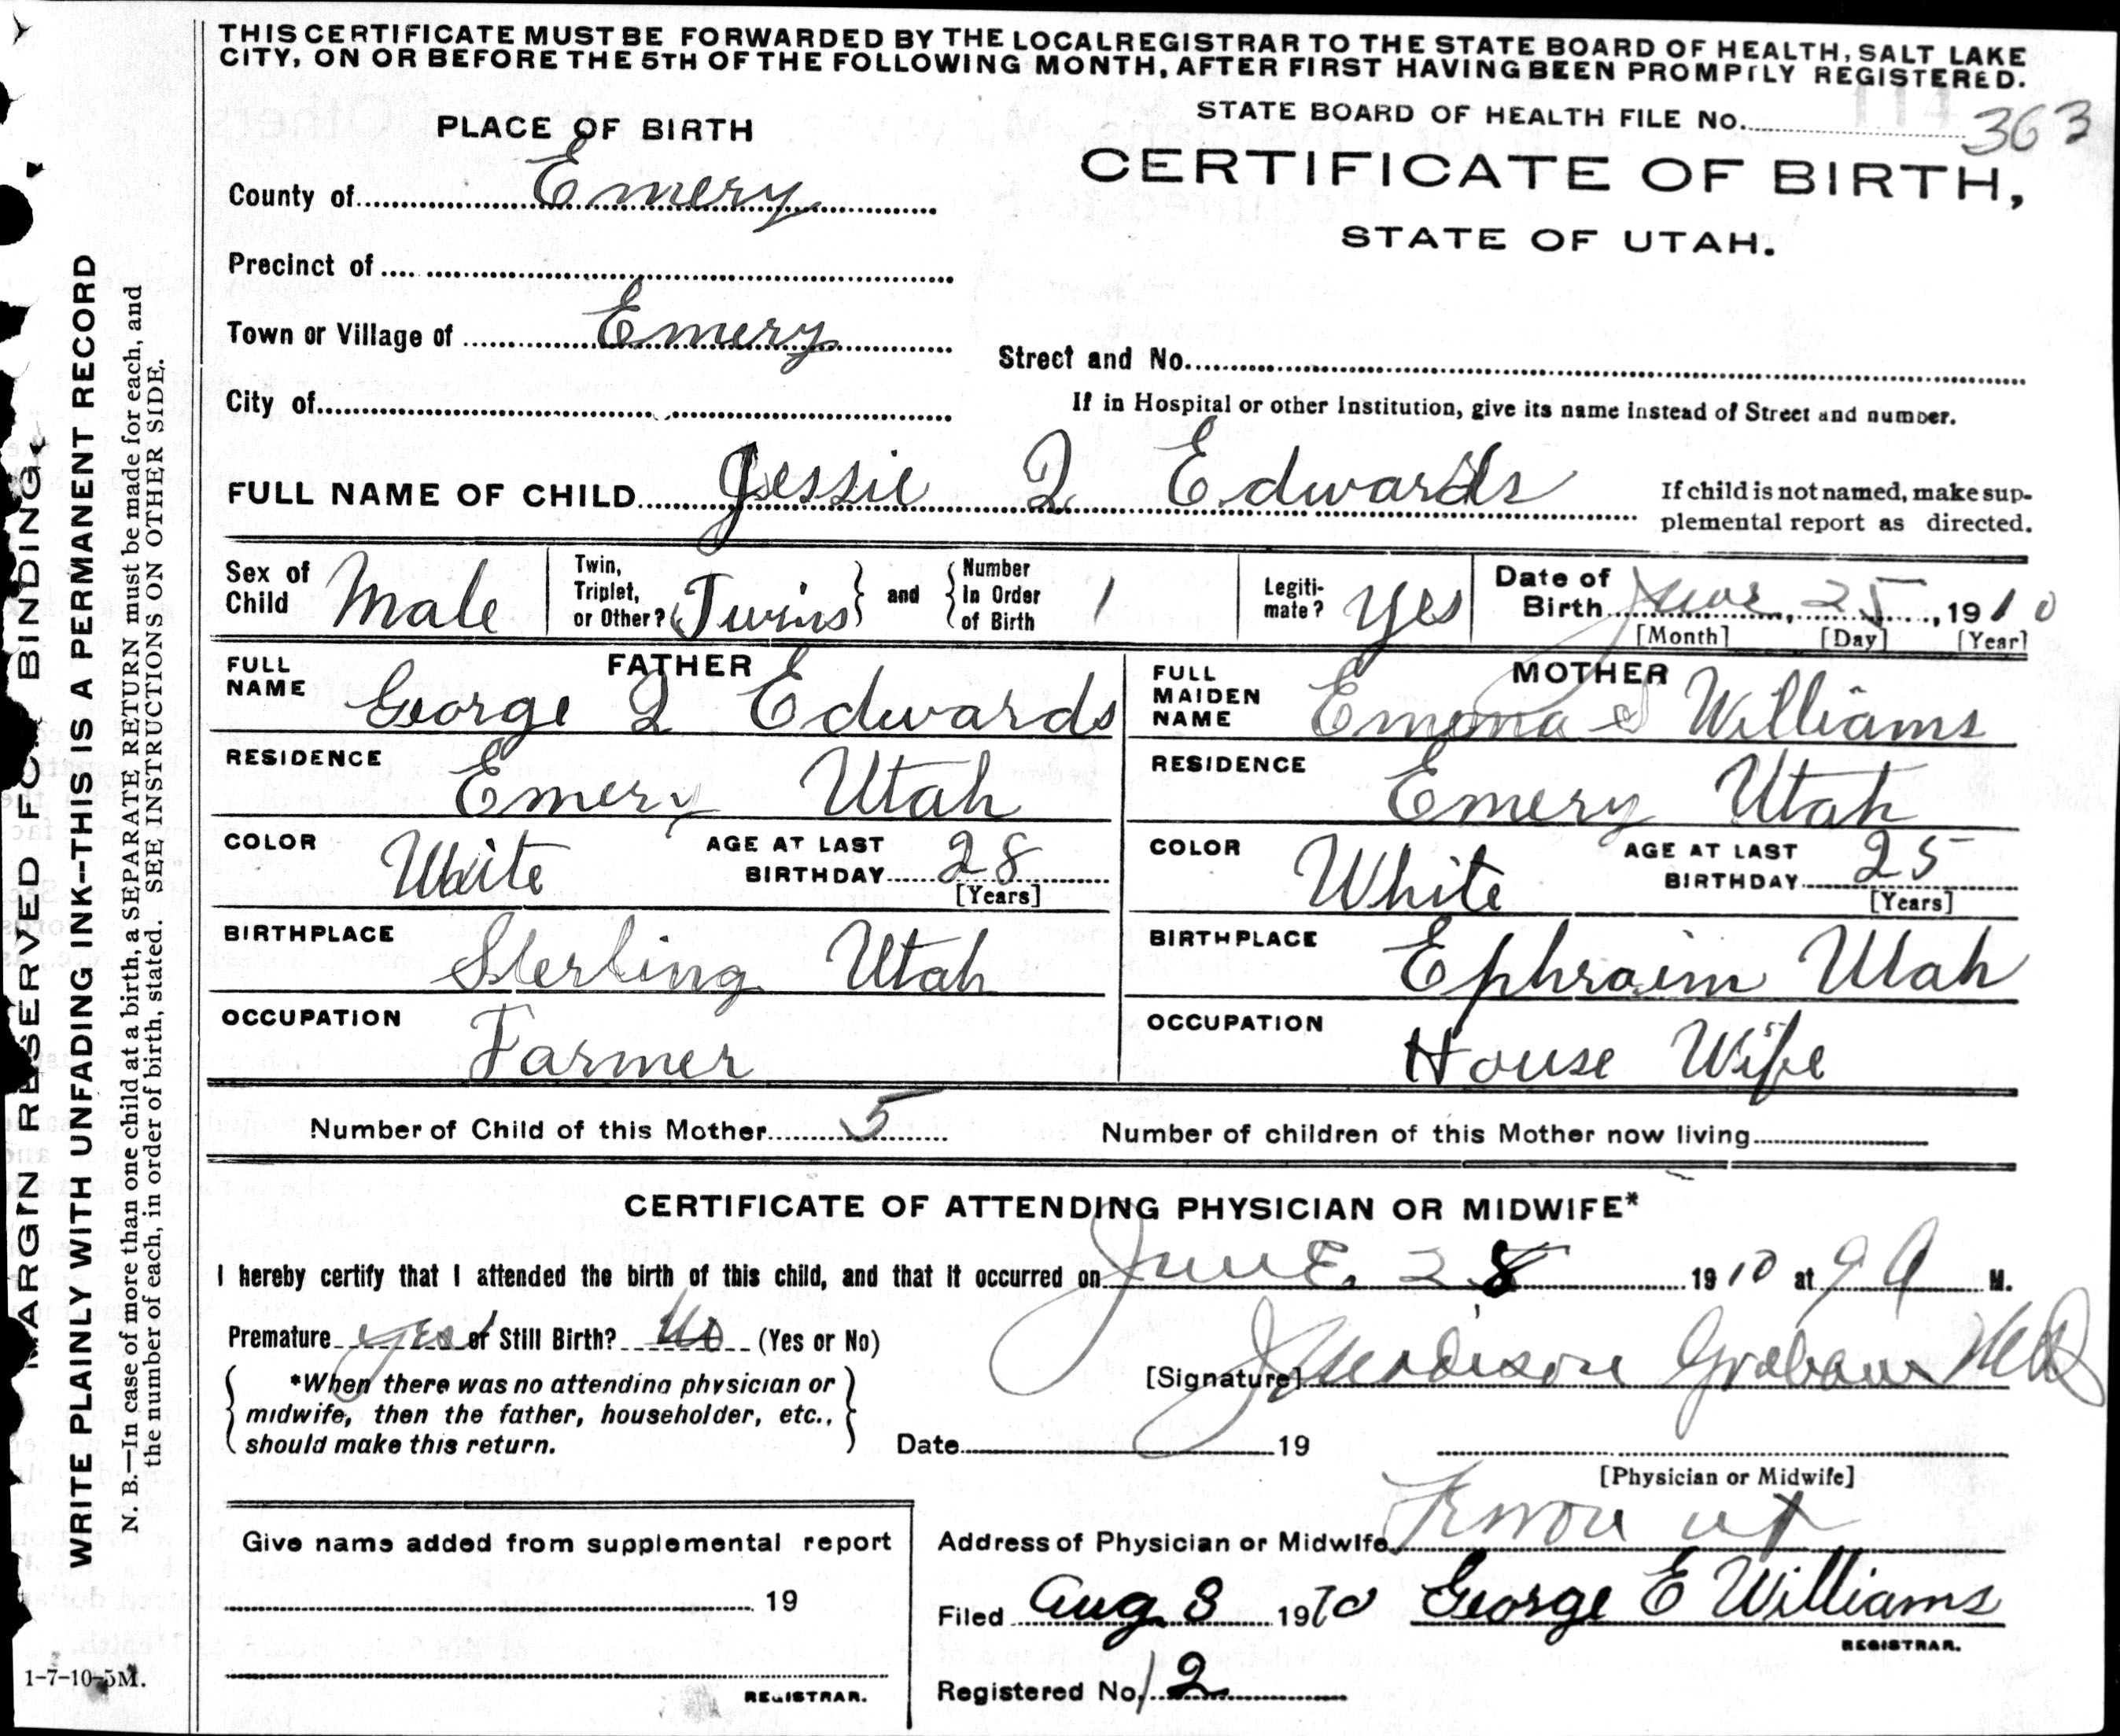 THIS CERTIFICATE MUST BE FORWARDED BY THE LOCAL REGISTRAR TO THE STATE BOARD OF HEALTH, SALT LAKE
CITY, ON OR BEFORE THE 5TH OF THE FOLLOWING MONTH, AFTER FIRST HAVING BEEN PROMPTLY REGISTERED.
STATE BOARD OF HEALTH FILE No. 363
PLACE OF BIRTH
CERTIFICATE OF BIRTH,
STATE OF UTAH.
County of Emery
Precinct of
Town or Village of Emery
Street and No.
City of
If in Hospital or other Institution, give its name instead of Street and number.
FULL NAME OF CHILD Jessie Q Edwards
If child is not named, make sup-
plemental report as directed.
Sex of Child Male
Twin, Triplet, or Other? Twins and Number In Order of Birth 1
Legiti-mate? Yes
Date of Birth June 25, 1910
[Month] [Day] [Year]
FATHER
FULL NAME George Q Edwards
RESIDENCE Emery Utah
COLOR White AGE AT LAST BIRTHDAY 28
[Years]
BIRTHPLACE Sterling Utah
OCCUPATION Farmer
MOTHER
FULL MAIDEN NAME Emma S Williams
RESIDENCE Emery Utah
COLOR White AGE AT LAST BIRTHDAY 25
[Years]
BIRTHPLACE Ephraim Utah
OCCUPATION House Wife
Number of Child of this Mother 5 Number of children of this Mother now living
CERTIFICATE OF ATTENDING PHYSICIAN OR MIDWIFE*
I hereby certify that I attended the birth of this child, and that it occurred on June 28 1910 at 9 A M.
Premature yes or Still Birth? No (Yes or No)
*When there was no attending physician or
midwife, then the father, householder, etc.,
should make this return.
[Signature] J Madison Graham MD
Date 19
[Physician or Midwife]
Give name added from supplemental report
19
REGISTRAR.
Address of Physician or Midwife
Filed Aug 3 1910 George E Williams
REGISTRAR.
Registered No. 12
MARGIN RESERVED FOR BINDING.
WRITE PLAINLY WITH UNFADING INK--THIS IS A PERMANENT RECORD
N. B.—In case of more than one child at a birth, a SEPARATE RETURN must be made for each, and
the number of each, in order of birth, stated. SEE INSTRUCTIONS ON OTHER SIDE.
1-7-10-5M.